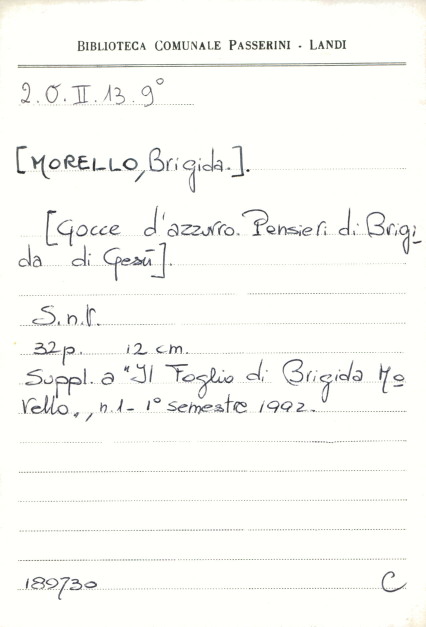 BIBLIOTECA COMUNALE PASSERINI - LANDI
2.O.II.13.9°
[MORELLO, Brigida.].
[Gocce d'azzurro. Pensieri di Brigi_
da di Gesù].
S.n.t.
32p. 12 cm.
Suppl. a "Il Foglio di Brigida Mo
rello", n.1- 1° semestre 1992.
189730 C